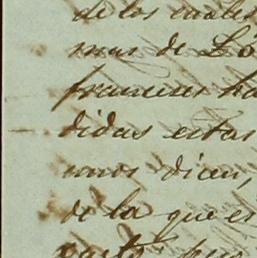 de los cuales
mas de Ló
franceses ha
didas estas
unos dicen,
de la que es